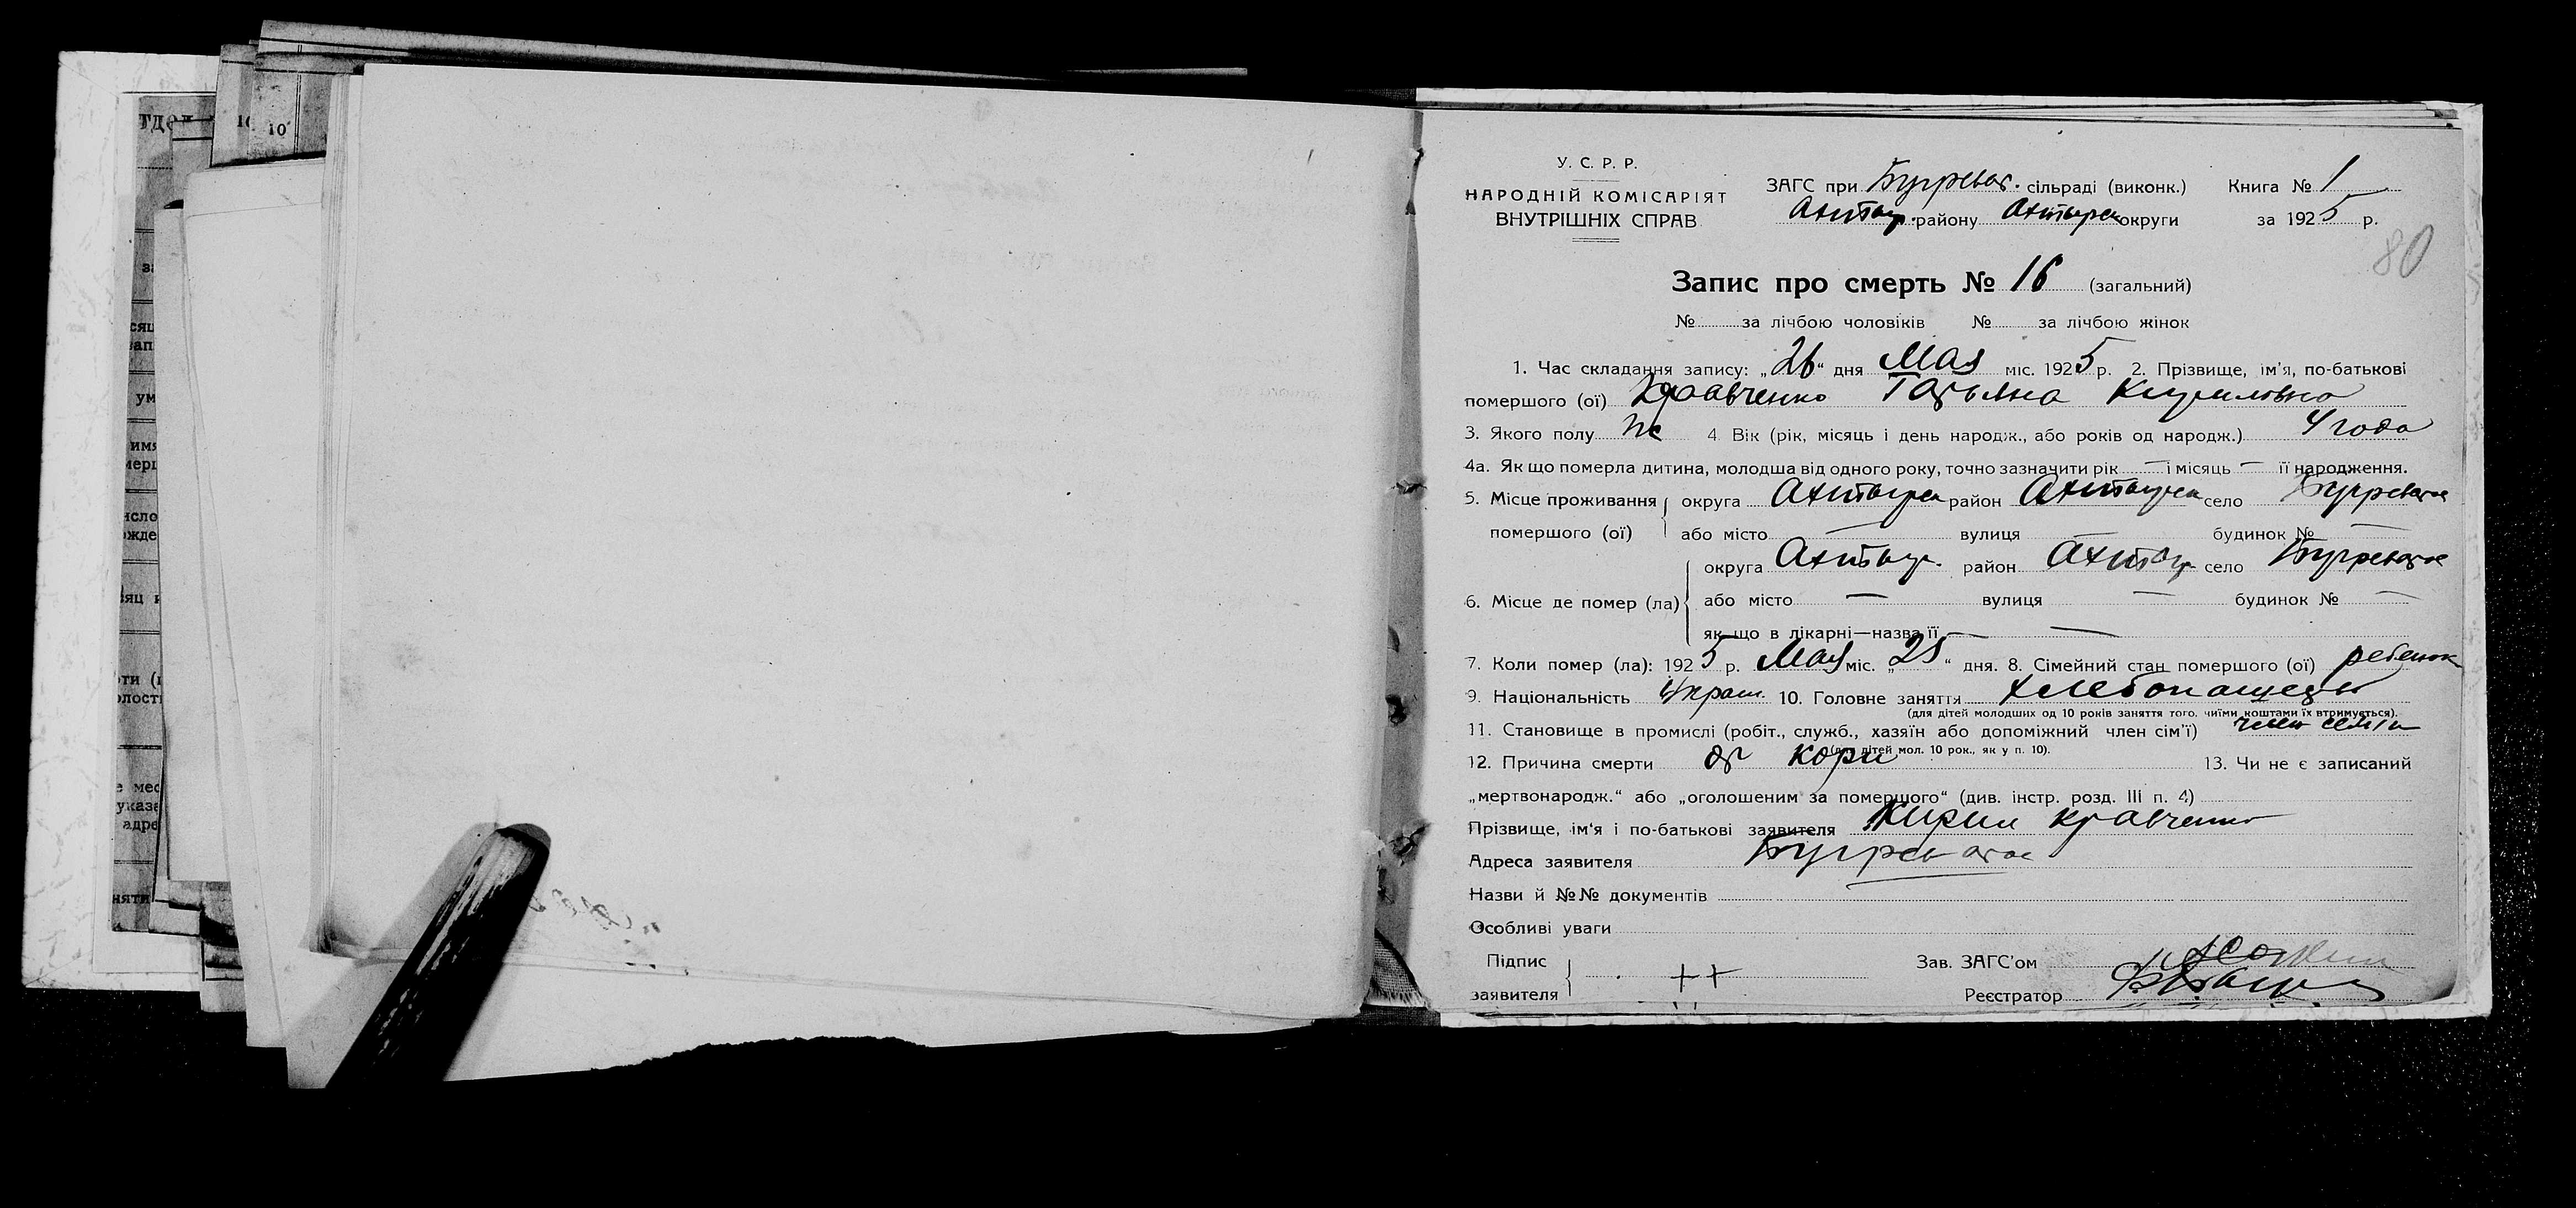 У. С. Р. Р.
НАРОДНІЙ КОМІСАРІЯТ
ВНУТРІШНІХ СПРАВ
ЗАГС при Бугреват. сільраді (виконк.) Книга № 1
Ахтыр. району Ахтырск округи за 1925 р.
80
Запис про смерть № 16 (загальний)
№ за лічбою чоловіків № за лічбою жінок
1. Час складання запису: „26“ дня Мая міс. 1925 р. 2. Прізвище, ім'я, по-батькові
помершого (ої) Кравченко Татьяна Кириловна
3. Якого полу ж 4. Вік (рік, місяць і день народж., або років од народж.) 4 года
4а. Як що померла дитина, молодша від одного року, точно зазначити рік — і місяць — її народження.
5. Місце проживання округа Ахтырск район Ахтырск село Бугреватое
помершого (ої) або місто — вулиця — будинок № —
округа Ахтыр. район Ахтыр село Бугреватое
6. Місце де помер (ла) або місто — вулиця — будинок № —
як що в лікарні—назва її —
7. Коли помер (ла): 1925 р. Мая міс. „25“ дня. 8. Сімейний стан помершого (ої) ребенок
9. Національність Украин. 10. Головне заняття хлебопашец
(для дітей молодших од 10 років заняття того, чиїми коштами їх втримується).
11. Становище в промислі (робіт., служб., хазяїн або допоміжний член сім'ї) член семьи
(для дітей мол. 10 рок., як у п. 10).
12. Причина смерти от кори 13. Чи не є записаний
„мертвонародж.“ або „оголошеним за померщого“ (див. інстр. розд. III п. 4)
Прізвище, ім'я і по-батькові заявителя Кирил Кравченко
Адреса заявителя Бугреватое
Назви й №№ документів
Особливі уваги
Підпис заявителя ++
Зав. ЗАГС'ом
Реєстратор